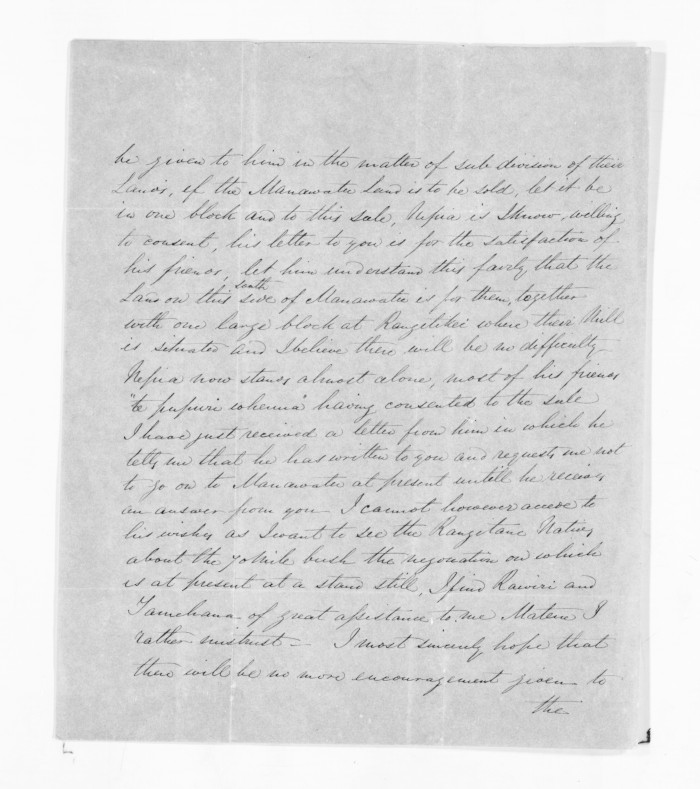 be given to him in the matter of sub division of their
Lands, if the Manawatu land is to be sold, let it be
in one block and to this sale, Nepia is I know, willing
to consent, his letter to you is for the satisfaction of
his friends, let him understand this fairly that the
Land on this south side of Manawatu is for them, together
with one large block at Rangitikei where their Mill
is situated and I believe there will be no difficulty
Nepia now stands almost alone, most of his friends
"te pupuri whenua" having consented to the sale
I have just received a letter from him in which he
tells me that he has written to you and requests me not
to go on to Manawatu at present untill he receives
an answer from you I cannot however accede to
his wishes as I want to see the Rangitane Natives
about the 70 Mile bush the negonation on which
is at present at a stand still, I find Rawiri and
Tamehana of great assistance to me Matene I
rather mistrust – I most sincerely hope that
there will be no more encouragement given to
the